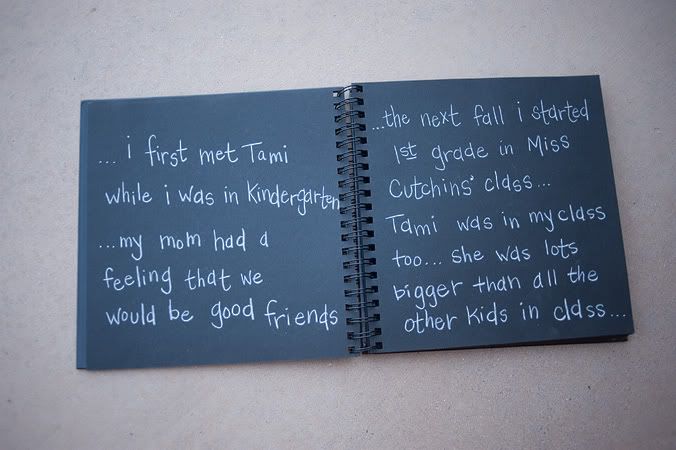 ... i first met Tami
while i was in Kindergarten
...my mom had a
feeling that we
would be good friends
...the next fall i started
1st grade in Miss
Cutchins' class...
Tami was in my class
too... she was lots
bigger than all the
other kids in class...